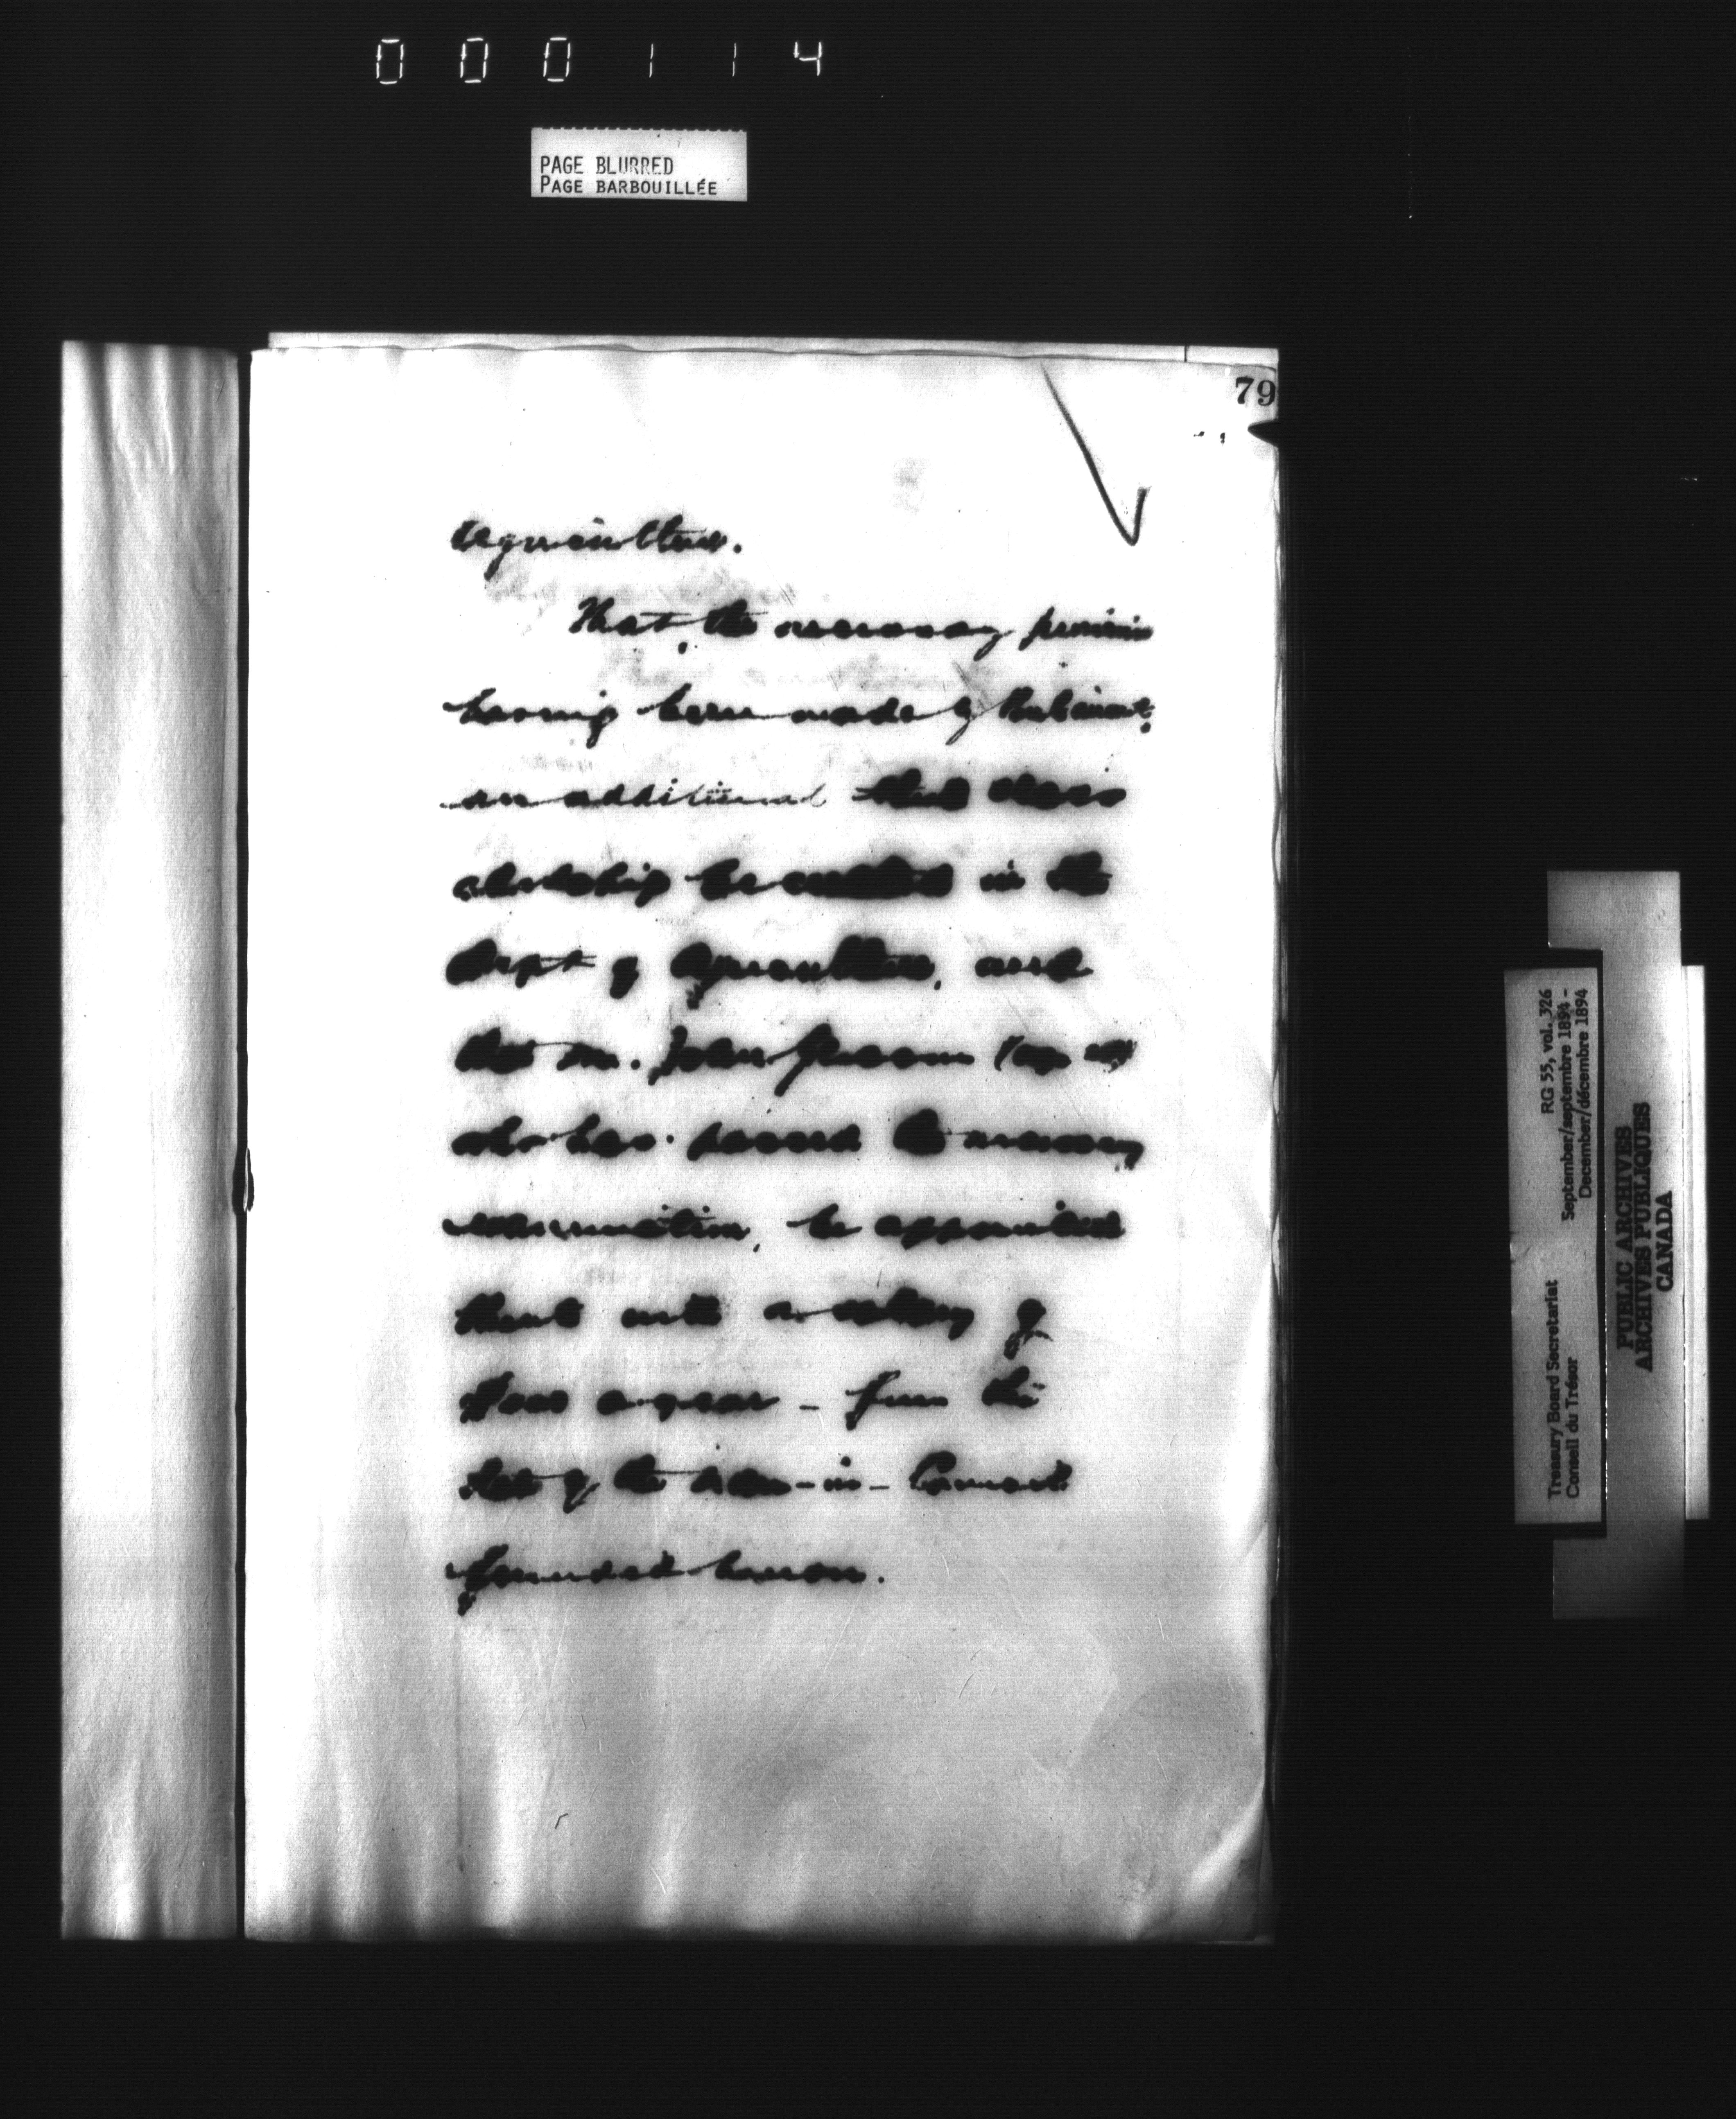 000114
PAGE BLURRED
PAGE BARBOUILLÉE
79
Agriculture.
That, the necessary provision
having been made by Parliament,
an additional third class
clerkship be created in the
Dept of Agriculture, and
that Mr. John
who has passed the necessary
examination, be appointed
thereto with a salary of
a year - from the
date of the Order-in-Council
founded hereon.
RG 55, vol. 326
September/septembre 1894 -
December/décembre 1894
Treasury Board Secretariat
Conseil du Trésor
PUBLIC ARCHIVES
ARCHIVES PUBLIQUES
CANADA